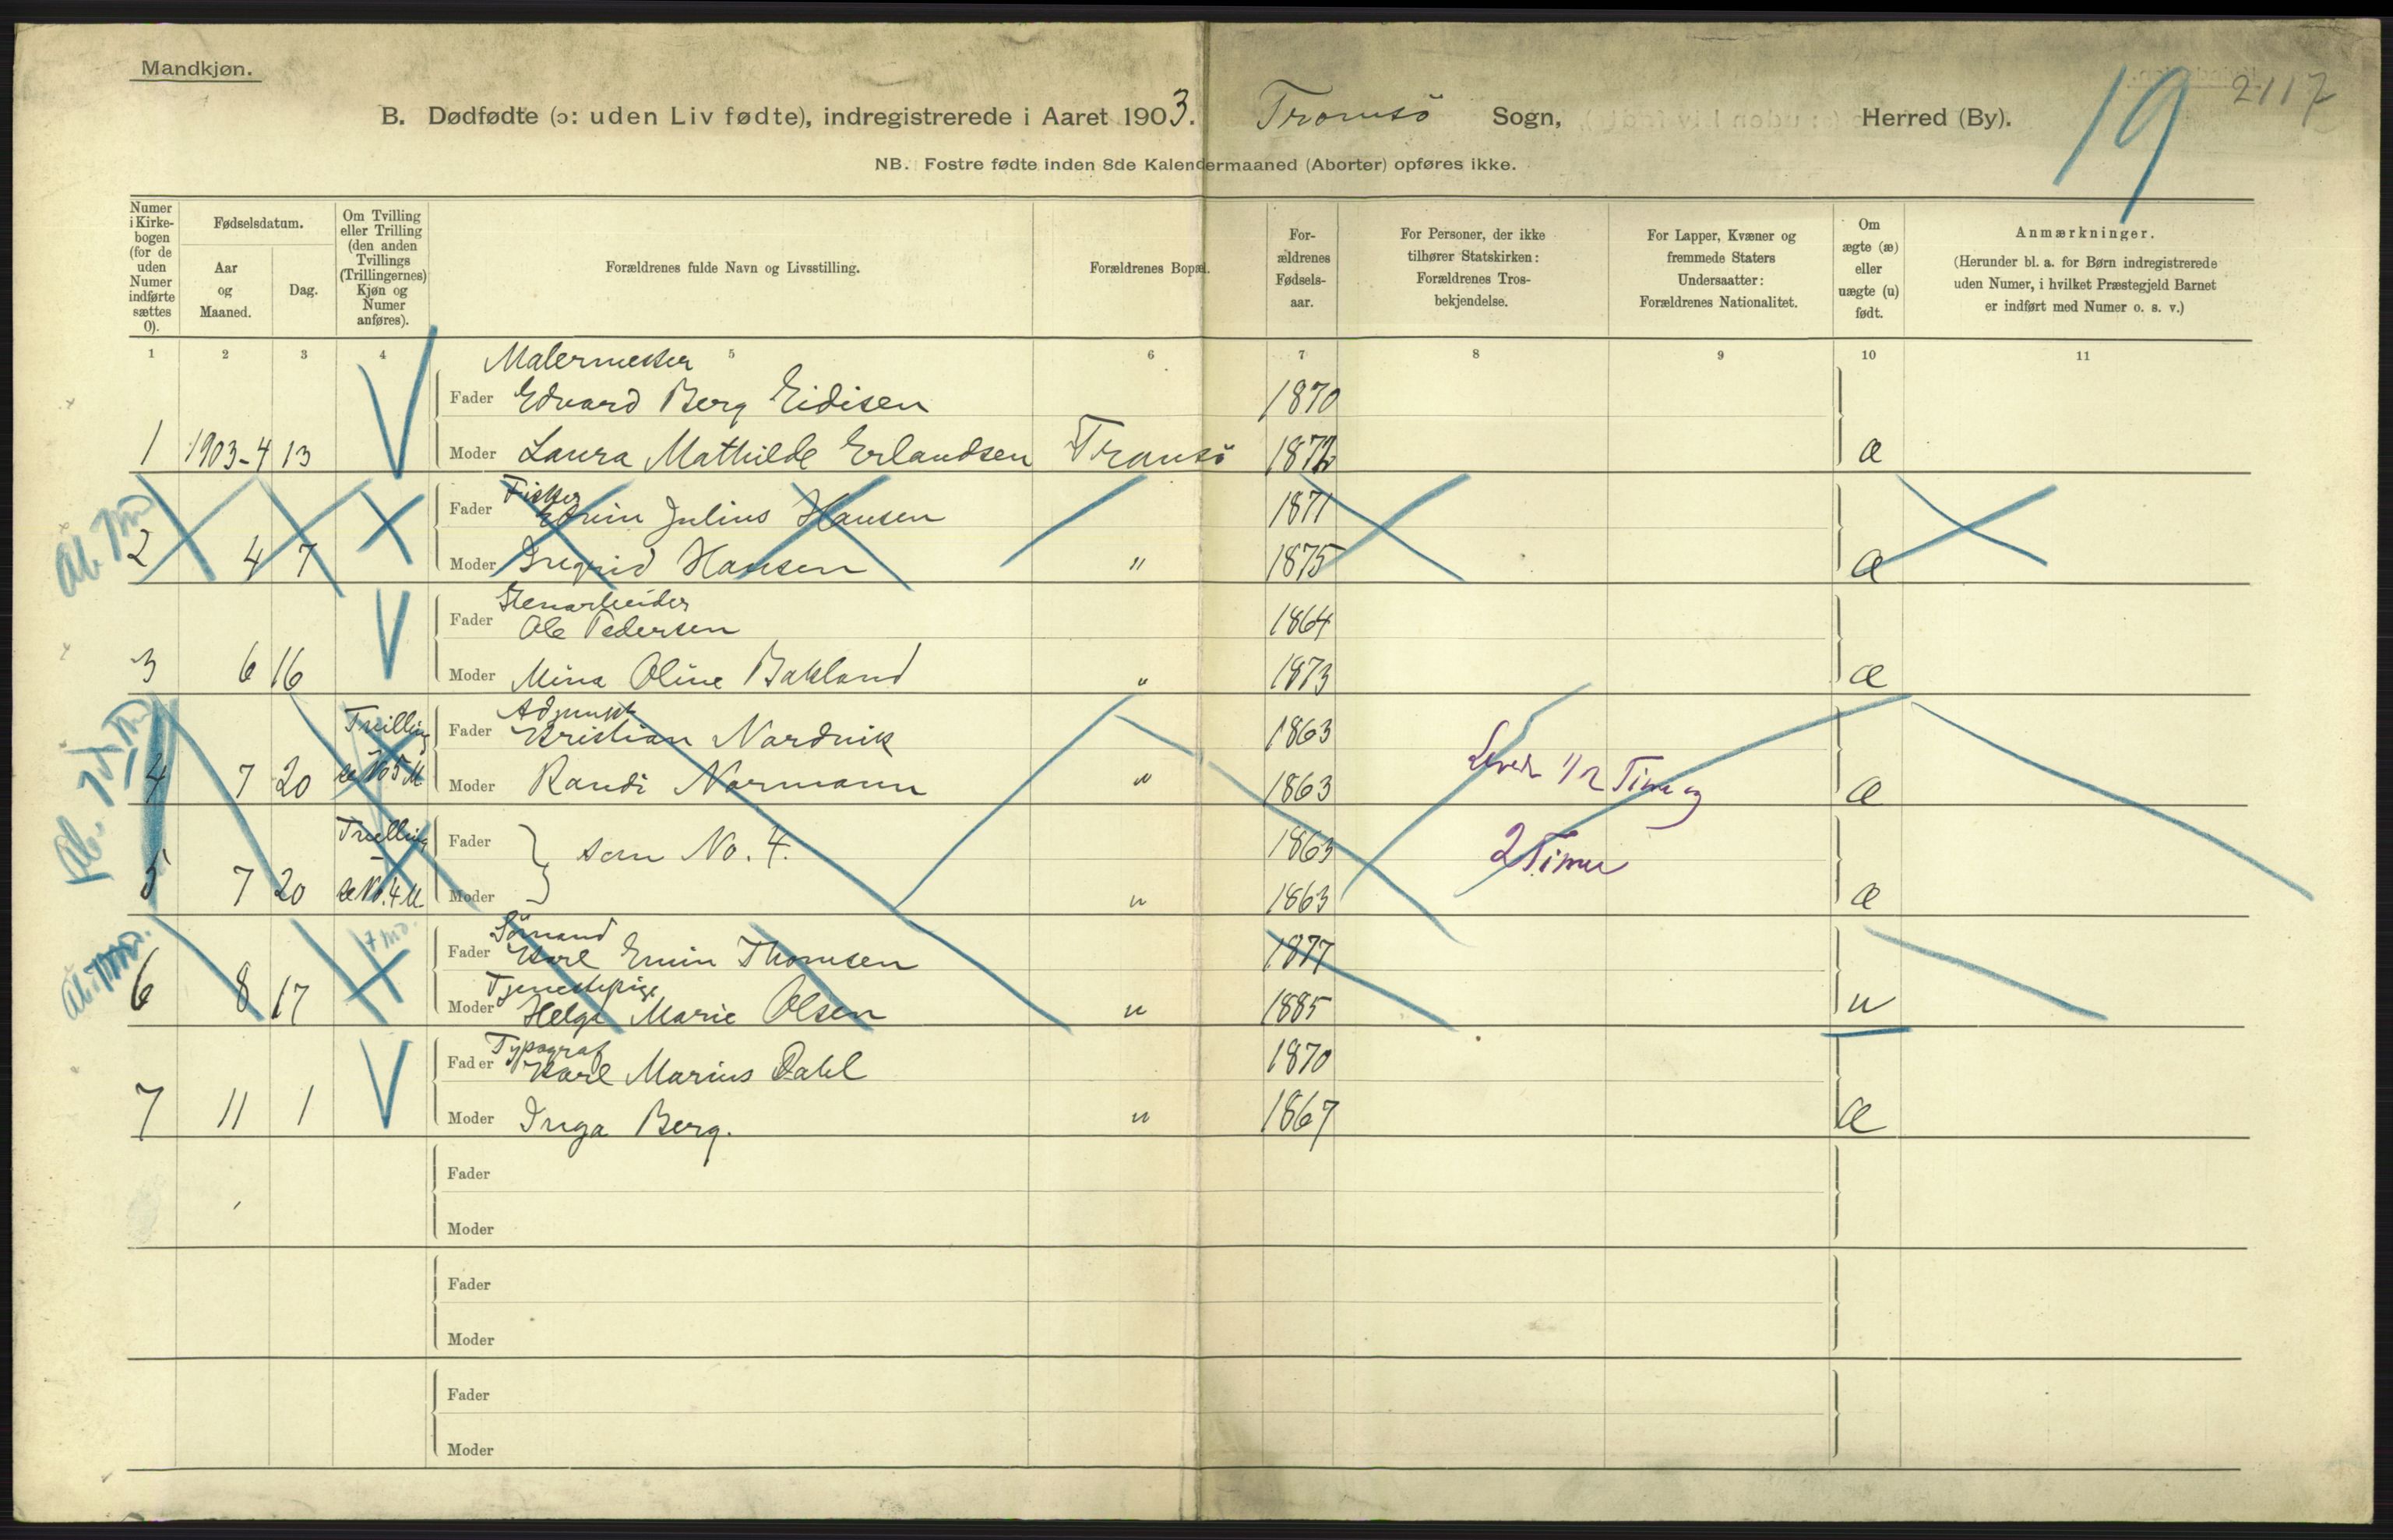 Mandkjøn.
19 2117
B. Dødfødte (ɔ: uden Liv fødte), indregistrerede i Aaret 1903. Tromsö Sogn, Herred (By).
NB. Fostre fødte inden 8de Kalendermaaned (Aborter) opføres ikke.
Numer i Kirke-bogen (for de uden Numer indførte sættes 0).
Fødselsdatum.
Aar og Maaned.
Dag.
Om Tvilling eller Trilling (den anden Tvillings (Trillingernes) Kjøn og Numer anføres).
Forældrenes fulde Navn og Livsstilling.
Forældrenes Bopæl.
For-ældrenes Fødsels-aar.
For Personer, der ikke tilhører Statskirken: Forældrenes Tros-bekjendelse.
For Lapper, Kvæner og fremmede Staters Undersaatter: Forældrenes Nationalitet.
Om ægte (æ) eller uægte (u) født.
Anmærkninger.
(Herunder bl. a. for Børn indregistrerede uden Numer, i hvilket Præstegjeld Barnet er indført med Numer o. s. v.)
1 2 3 4 5 6 7 8 9 10 11
Malermester
Fader Edvard Berg Eidisen 1870
1 1903-4 13 Moder Laura Mathilde Erlandsen Tromsö 1872 æ
Fisker
Fader Edvin Julius Hansen 1871
2 4 7 Moder Ingrid Hansen " 1875 æ
Stenarbeider
Fader Ole Pedersen 1864
3 6 16 Moder Mina Oline Bakland " 1873 æ
Adjunkt
Tvilling Fader Kristian Nordvik 1863
4 7 20 se No 5 M Moder Randi Normann " 1863 Levede 1/2 Time og æ
Tvilling Fader } som No. 4. 1863 2 Timer
5 7 20 se No. 4 M Moder " 1863 æ
7 md.
Sömand
Fader Karl Emin Thomsen 1877
Tjenestepige
6 8 17 Moder Helga Marie Olsen " 1885 u
Typograf
Fader Karl Marius Dahl 1870
7 11 1 Moder Inga Berg. " 1867 æ
Fader
Moder
Fader
Moder
Fader
Moder